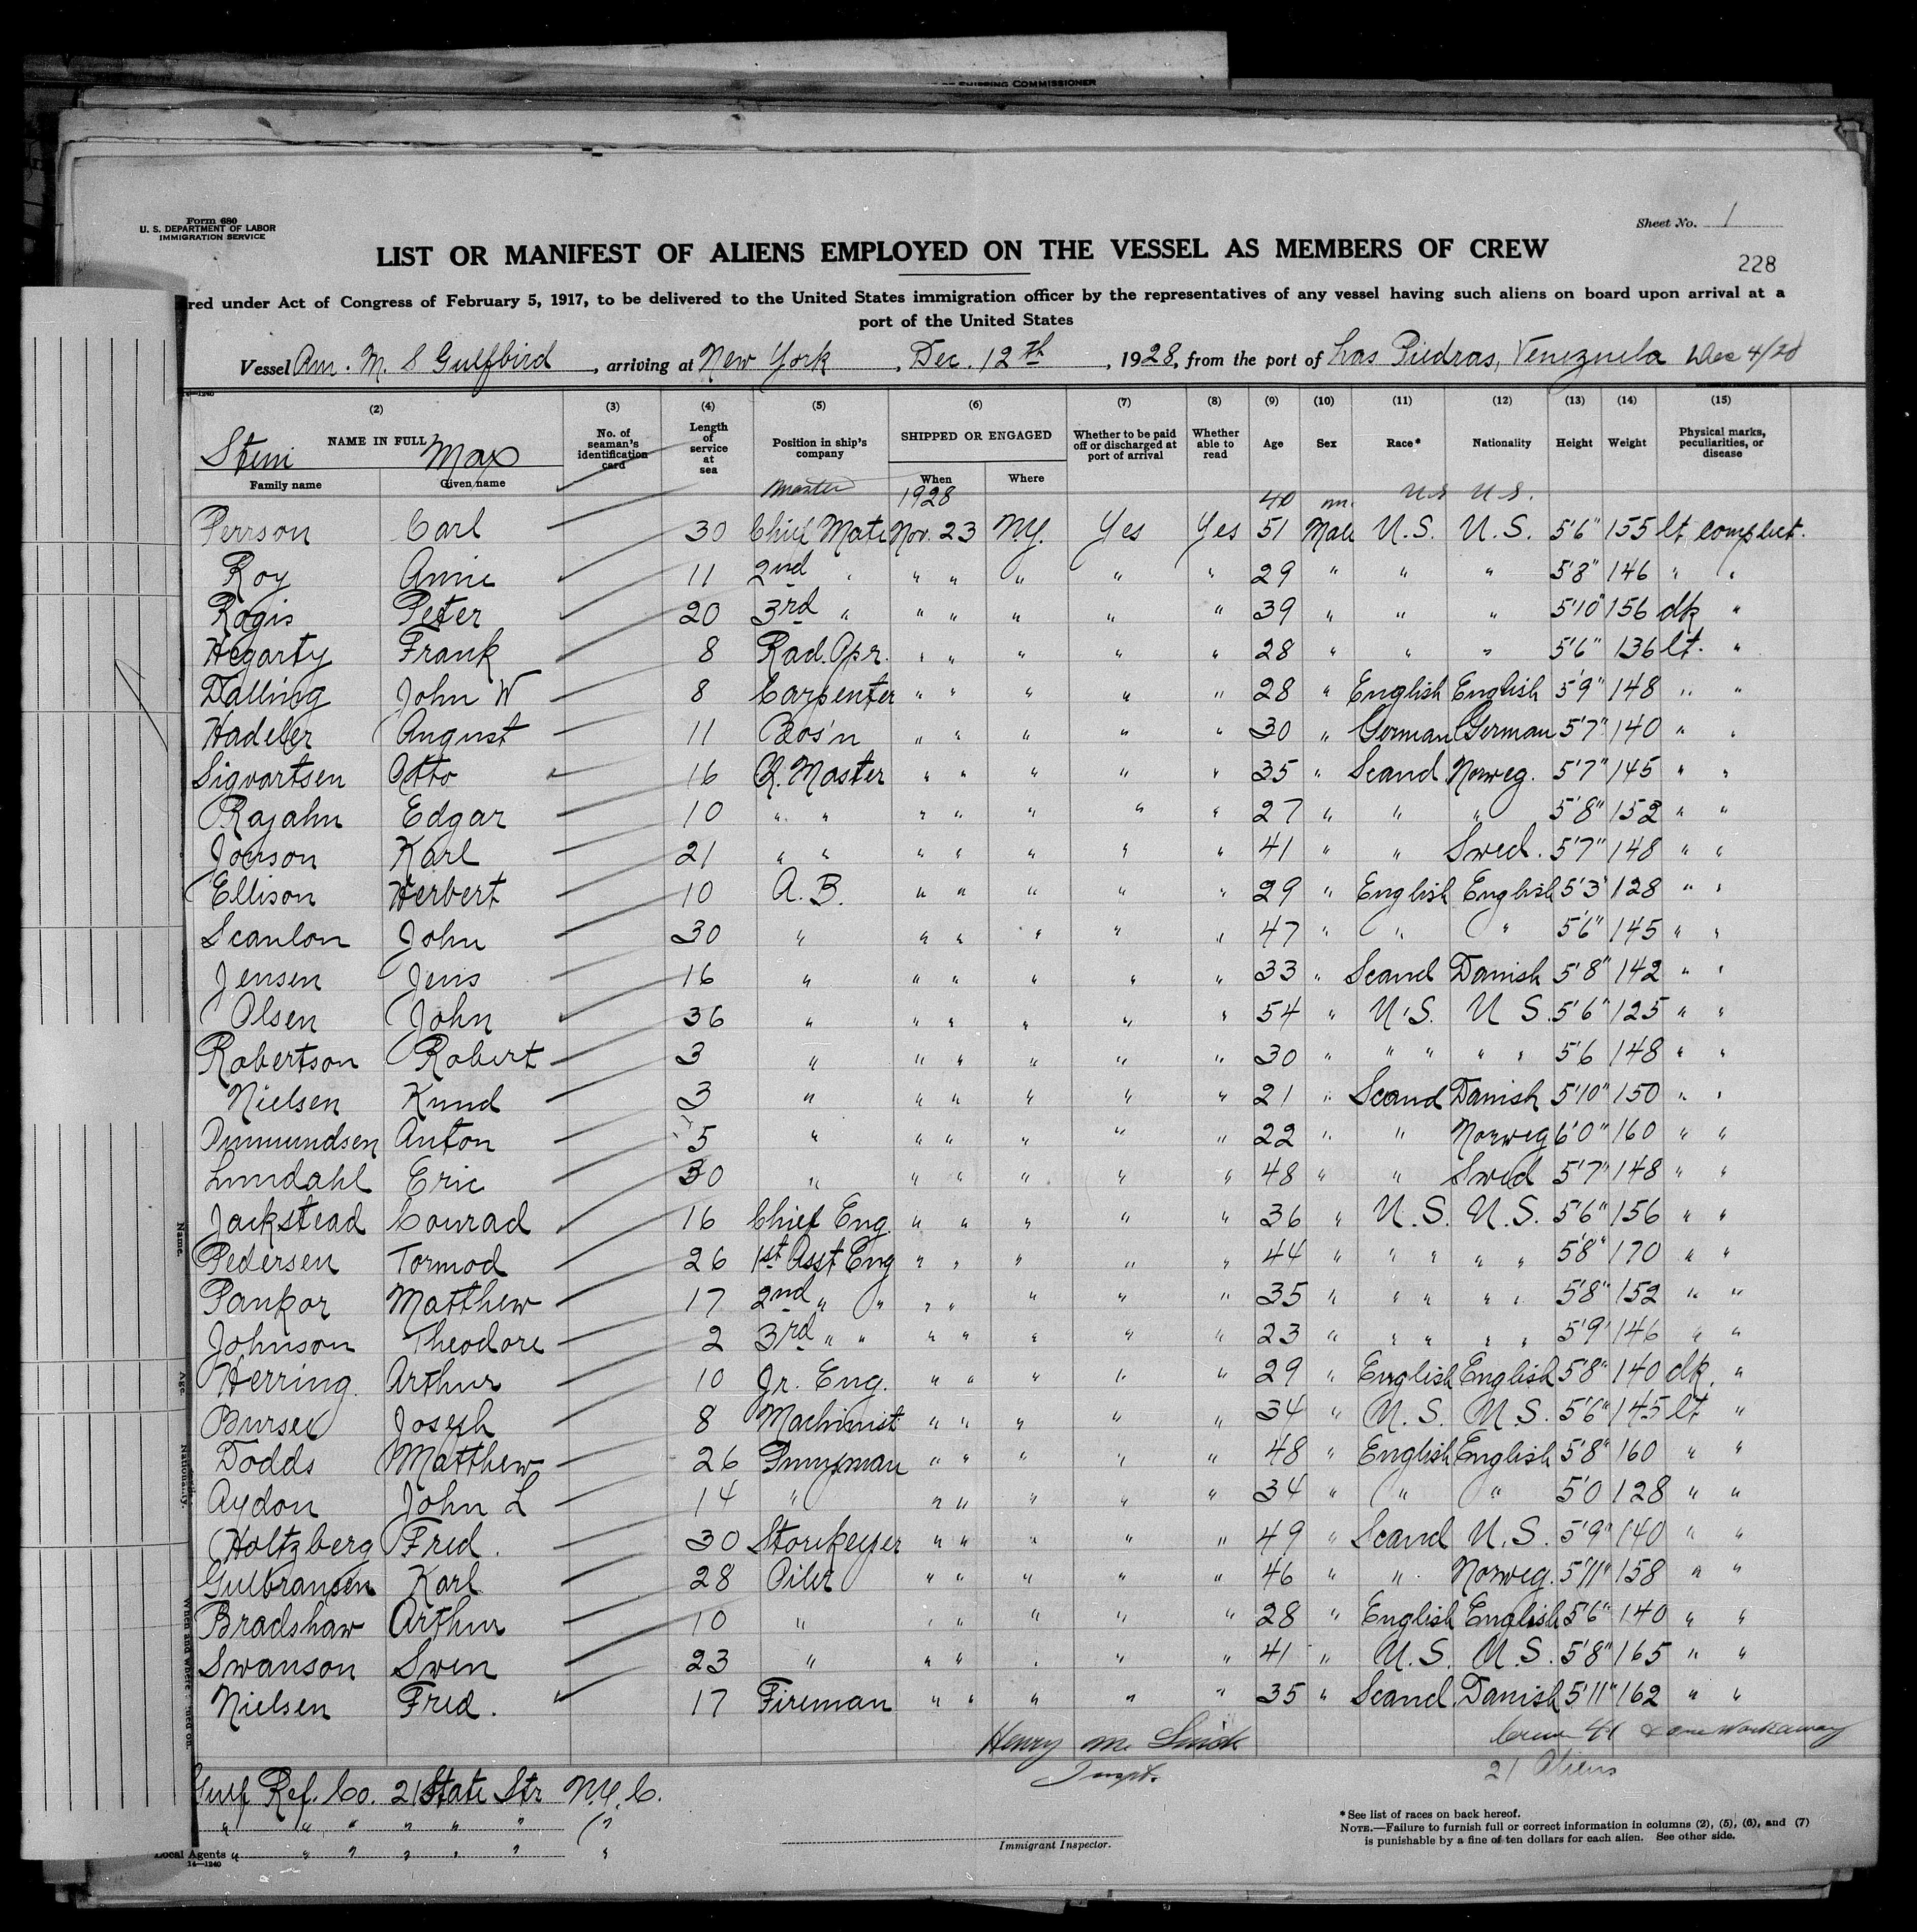 OF SHIPPING COMMISSIONER
Form 680
U. S. DEPARTMENT OF LABOR
IMMIGRATION SERVICE
Sheet No. 1
LIST OR MANIFEST OF ALIENS EMPLOYED ON THE VESSEL AS MEMBERS OF CREW
228
red under Act of Congress of February 5, 1917, to be delivered to the United States immigration officer by the representatives of any vessel having such aliens on board upon arrival at a
port of the United States
Vessel Am. M. S Gulfbird, arriving at New York, Dec. 12th, 1928, from the port of Las Piedras, Venezuela Dec 4/28
14—1240
(2) (3) (4) (5) (6) (7) (8) (9) (10) (11) (12) (13) (14) (15)
NAME IN FULL No. of seaman's identification card Length of service at sea Position in ship's company SHIPPED OR ENGAGED Whether to be paid off or discharged at port of arrival Whether able to read Age Sex Race* Nationality Height Weight Physical marks, peculiarities, or disease
Family name Given name When Where
Max Master 1928 40 m. U.S U.S.
Perrson Carl 30 Chief Mate Nov. 23 N.Y. Yes Yes 51 Male U.S. U.S. 5'6" 155 lt complect.
Roy Annie 11 2nd " " " " " " 29 " " " 5'8" 146 " "
Rogis Peter 20 3rd " " " " " " 39 " " " 5'10" 156 dk "
Hegarty Frank 8 Rad. Opr. " " " " " 28 " " " 5'6" 136 lt. "
Dalling John W 8 Carpenter " " " " " 28 " English English 5'9" 148 " "
Hadeler August 11 Bos'n " " " " " 30 " German German 5'7" 140 " "
Sigvartsen Otto 16 Q. Master " " " " " 35 " Scand Norweg. 5'7" 145 " "
Rajahn Edgar 10 " " " " " " " 27 " " " 5'8" 152 " "
Jonson Karl 21 " " " " " " " 41 " " Swed. 5'7" 148 " "
Ellison Herbert 10 A. B. " " " " " 29 " English English 5'3" 128 " "
Scanlon John 30 " " " " " " 47 " " " 5'6" 145 " "
Jensen Jens 16 " " " " " " 33 " Scand Danish 5'8" 142 " "
Olsen John 36 " " " " " " 54 " U.S. U S. 5'6" 125 " "
Robertson Robert 3 " " " " " " 30 " " " " " 5'6 148 " "
Nielsen Knud 3 " " " " " " 21 " Scand Danish 5'10" 150 " "
Anton 5 " " " " " " 22 " " Norweg 6'0" 160 " "
Lundahl Eric 30 " " " " " " 48 " " Swed 5'7" 148 " "
Jackstead Conrad 16 Chief Eng. " " " " " 36 " U.S. U.S. 5'6" 156 " "
Pedersen Tormod 26 1st Asst Eng " " " " " 44 " " " " " 5'8" 170 " "
Pankor Matthew 17 2nd " " " " " " " 35 " " " " " 5'8" 152 " "
Johnson Theodore 2 3rd " " " " " " " 23 " " " " " 5'9" 146 " "
Herring Arthur 10 Jr. Eng. " " " " " 29 " English English 5'8" 140 dk. "
Joseph 8 Machinist " " " " " 34 " U.S. U.S. 5'6" 145 lt "
Dodds Matthew 26 Pumpman " " " " " 48 " English English 5'8" 160 " "
Aydon John L 14 " " " " " " 34 " " " 5'0 128 " "
Holtzberg Fred. 30 Storekeeper " " " " " 49 " Scand U.S. 5'9" 140 " "
Gulbransen Karl 28 Oiler " " " " " 46 " " Norweg. 5'11" 158 " "
Bradshaw Arthur 10 " " " " " " 28 " English English 5'6" 140 " "
Swanson Sven 23 " " " " " " 41 " U.S. U.S. 5'8" 165 " "
Nielsen Fred. 17 Fireman " " " " " 35 " Scand. Danish 5'11" 162 " "
Henry M. Crew 41 & one workaway
Inspt. 21 Aliens
Gulf Ref. Co. 21 State Str N.Y.C.
" " " " " " "
Local Agents " " " " " " "
14—1240
Immigrant Inspector.
*See list of races on back hereof.
NOTE.—Failure to furnish full or correct information in columns (2), (5), (6), and (7)
is punishable by a fine of ten dollars for each alien. See other side.
Name.
Age.
Nationality.